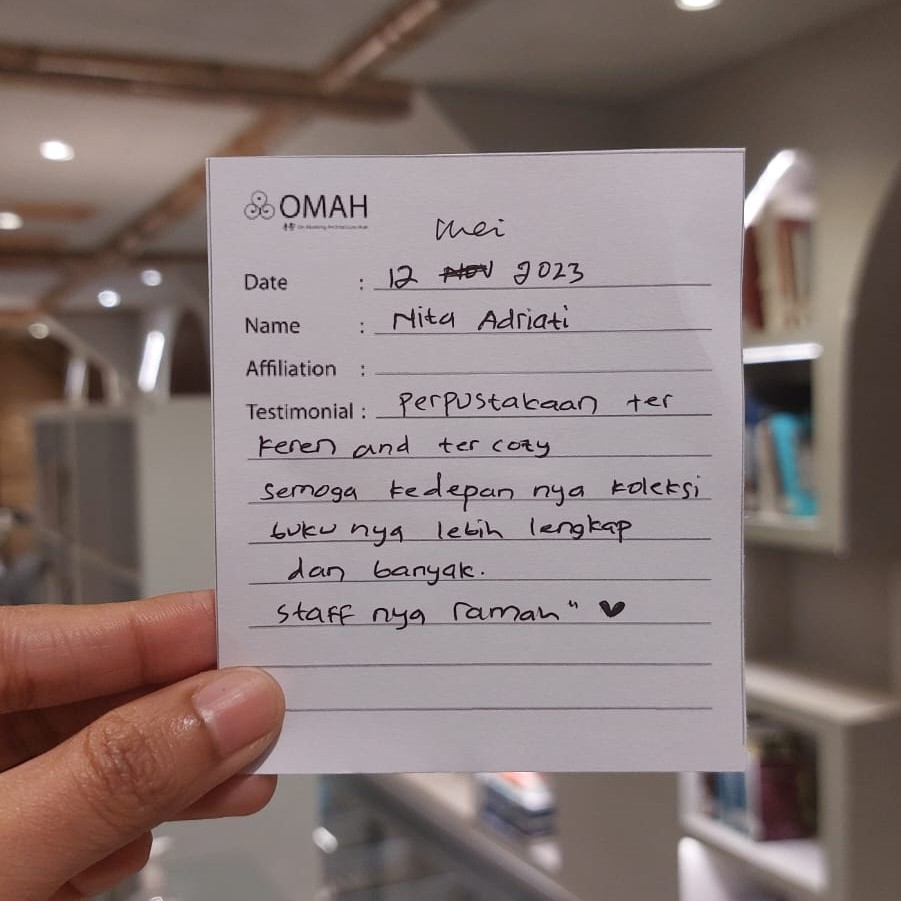 OMAH
Mei
Date : 12 Nov 2023
Name : Nita Adriati
Affiliation :
Testimonial : Perpustakaan ter
keren and ter cozy
semoga kedepan nya koleksi
buku nya lebih lengkap
dan banyak.
Staff nya ramah" ♥